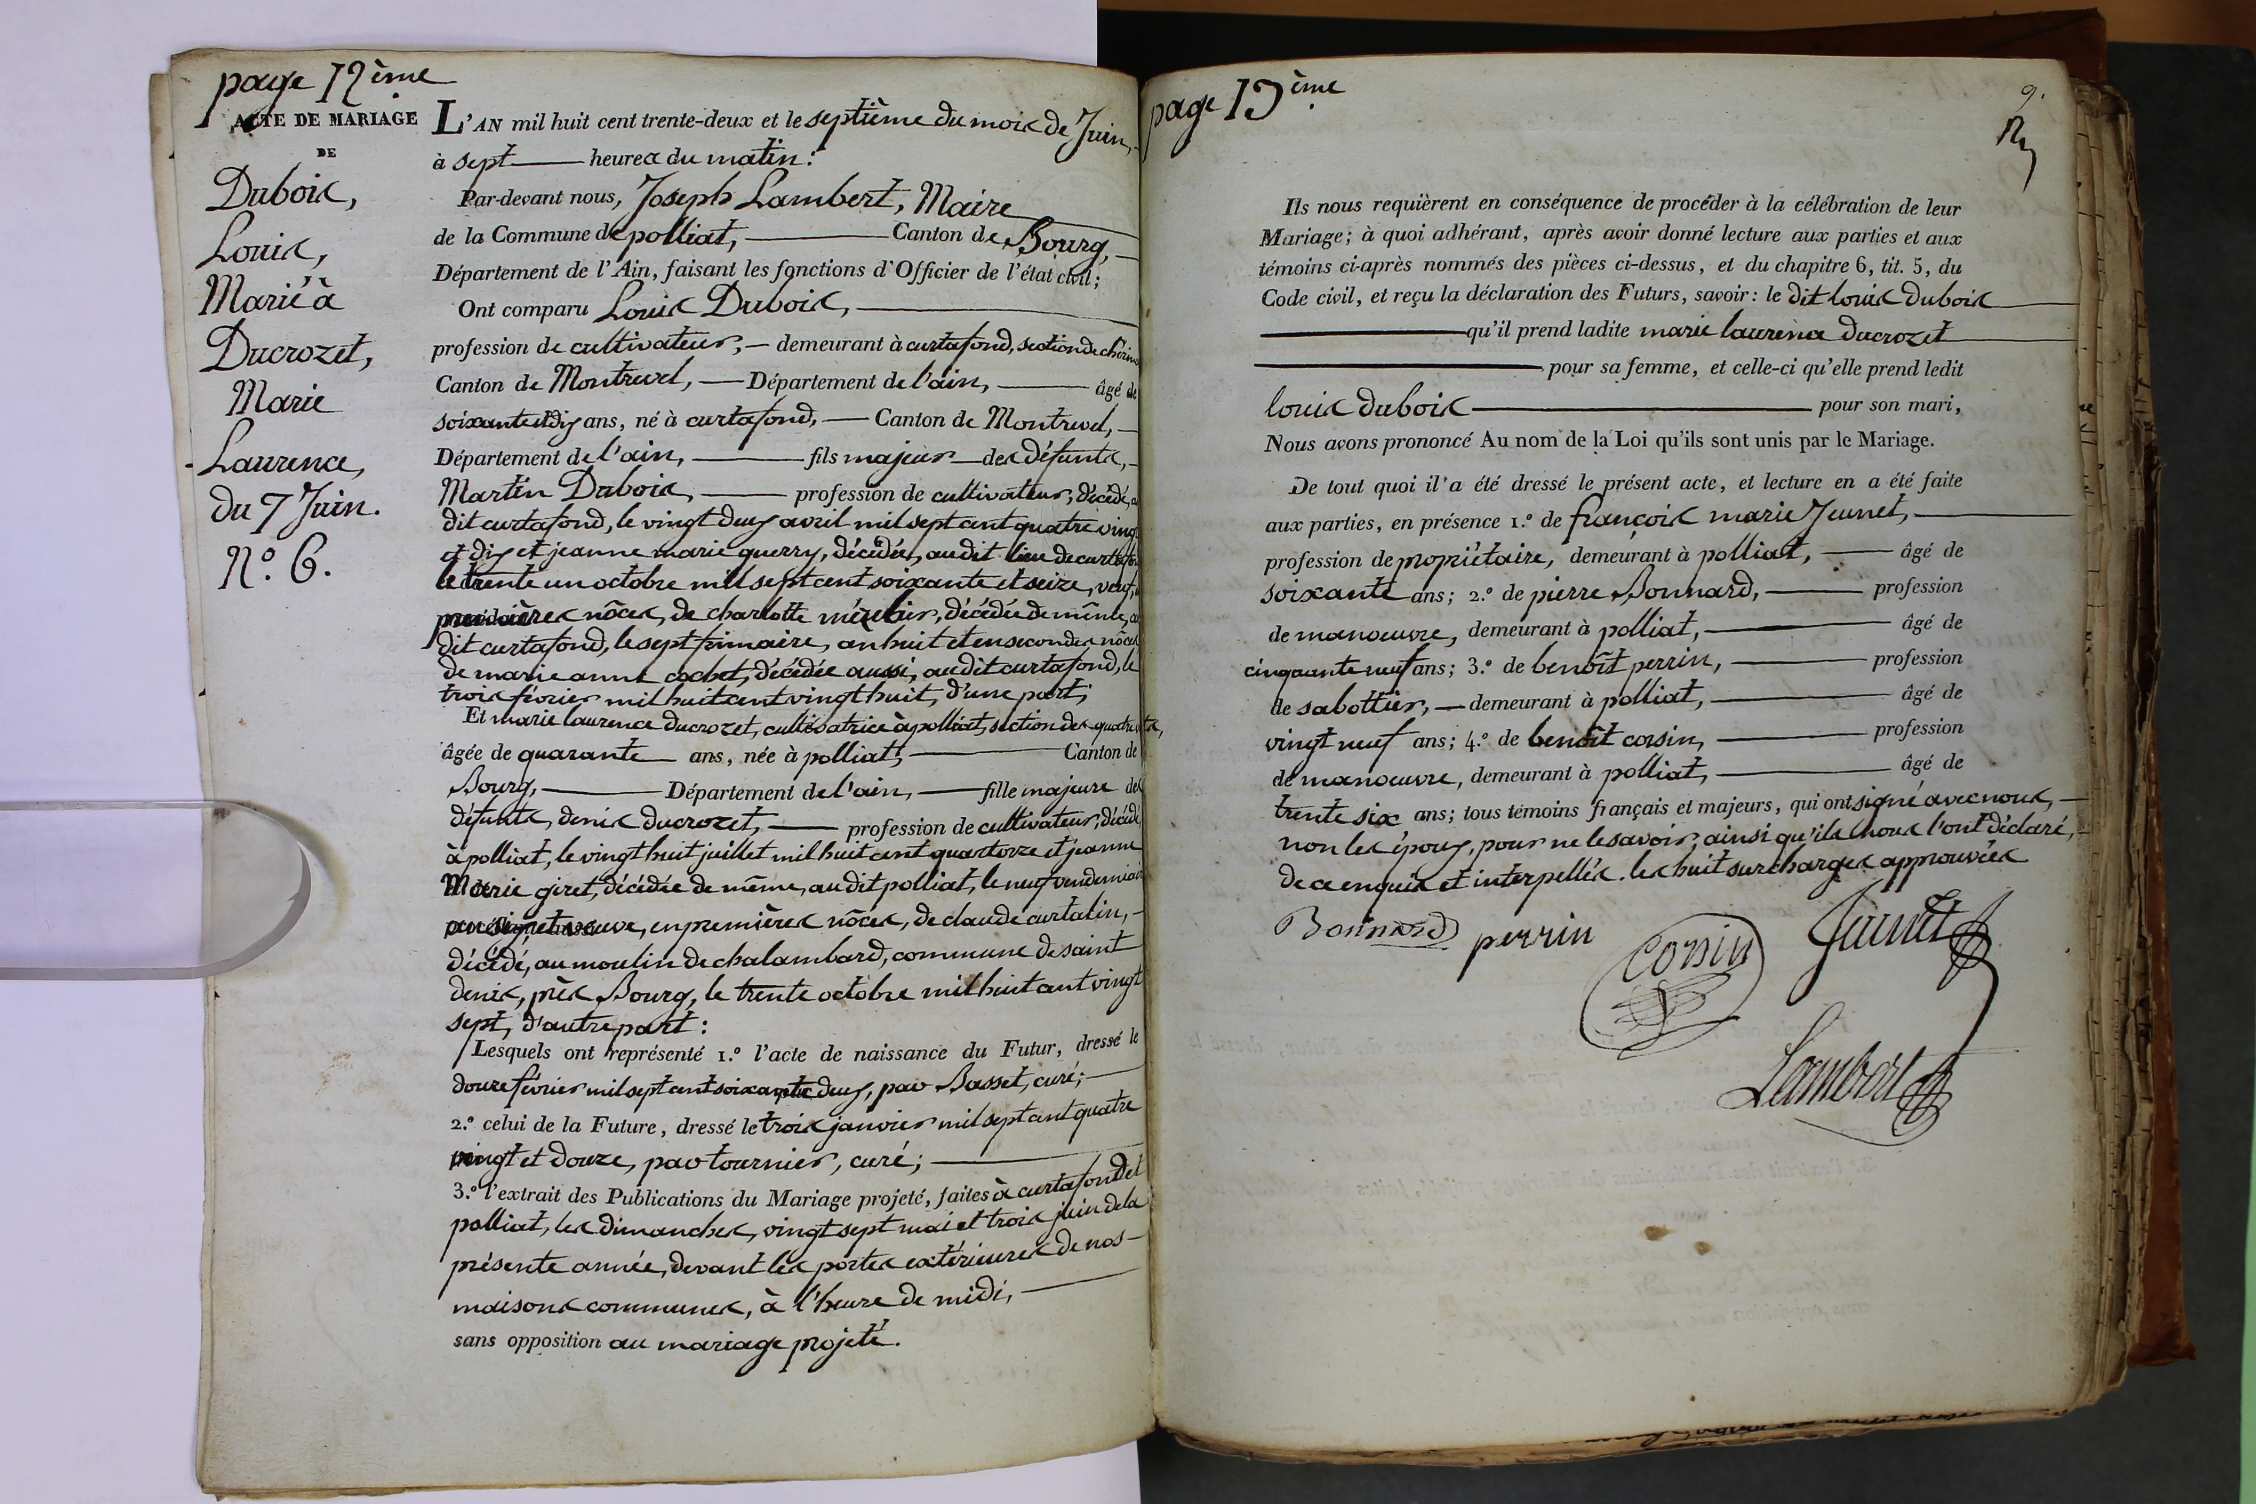 page 12ème
ACTE DE MARIAGE
DE
Dubois,
Louis,
Marié à
Ducrozet,
Marie
Laurence,
du 7 Juin.
N.º 6.
L'AN mil huit cent trente-deux et le septième du mois de Juin,
à sept heures du matin:
Par-devant nous, Joseph Lambert, Maire
de la Commune de polliat, Canton de Bourg,
Département de l'Ain, faisant les fonctions d'Officier de l'état civil;
Ont comparu Louis Dubois,
profession de cultivateur, demeurant à curtafond, section de
Canton de Montrevel, Département de l'ain, âgé de
soixante et dix ans, né à curtafond, Canton de Montrevel,
Département de l'ain, fils majeur des défunts,
Martin Dubois, profession de cultivateur, décédé, au
dit curtafond, le vingt deux avril mil sept cent quatre vingt
et dix et jeanne marie guerry, décédée, audit lieu de curtafond
le trente un octobre mil sept cent soixante et seize, veuf,
premières nôces, de charlotte décédée de même, au
dit curtafond, le sept frimaire, an huit et en secondes nôces
de marie anne cochet, décédée aussi, audit curtafond, le
trois février mil huit cent vingt huit, d'une part;
Et marie laurence ducrozet, cultivatrice à polliat, section des
âgée de quarante ans, née à polliat, Canton de
Bourg, Département de l'ain, fille majeure des
défunts, denis ducrozet, profession de cultivateur, décédé
à polliat, le vingt huit juillet mil huit cent quatorze et jeanne
Marie giret, décédée de même, audit polliat, le neuf vendemiaire
veuve, en premières nôces, de claude curtalin,
décédé, au moulin de chalambard, commune de saint
denis, près Bourg, le trente octobre mil huit cent vingt
sept, d'autre part:
Lesquels ont représenté 1.º l'acte de naissance du Futur, dressé le
douze février mil sept cent soixante deux, par Basset, curé;
2.º celui de la Future, dressé le trois janvier mil sept cent quatre
vingt et douze, par tournier, curé;
3.º l'extrait des Publications du Mariage projeté, faites à curtafond et
polliat, les dimanches, vingt sept mai et trois juin de la
présente année, devant les portes extérieures de nos
maisons communes, à l'heure de midi,
sans opposition au mariage projeté.
page 13ème
9.
Ils nous requièrent en conséquence de procéder à la célébration de leur
Mariage; à quoi adhérant, après avoir donné lecture aux parties et aux
témoins ci-après nommés des pièces ci-dessus, et du chapitre 6, tit. 5, du
Code civil, et reçu la déclaration des Futurs, savoir: le dit louis dubois
qu'il prend ladite marie laurence ducrozet
pour sa femme, et celle-ci qu'elle prend ledit
louis dubois pour son mari,
Nous avons prononcé Au nom de la Loi qu'ils sont unis par le Mariage.
De tout quoi il'a été dressé le présent acte, et lecture en a été faite
aux parties, en présence 1.º de françois marie Jeunet,
profession de propriétaire, demeurant à polliat, âgé de
soixante ans; 2.º de pierre Bonnard, profession
de manoeuvre, demeurant à polliat, âgé de
cinquante neuf ans; 3.º de benoît perrin, profession
de sabottier, demeurant à polliat, âgé de
vingt neuf ans; 4.º de benoît corsin, profession
de manoeuvre, demeurant à polliat, âgé de
trente six ans; tous témoins français et majeurs, qui ont signé avec nous,
non les époux, pour ne le savoir, ainsi qu'ils nous l'ont déclaré,
de ce enquis et interpellés. les huit surcharges approuvées
Bonnard perrin Corsin Jeunet
Lambert